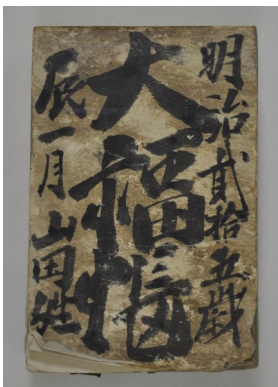 明治貳拾五歳
大福帳
辰一月
山田姓